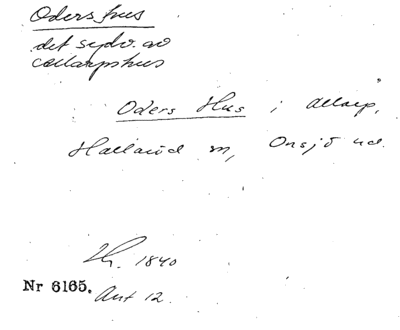 Oders hus
det sydv. av
Allarpshus
Oders Hus i Allarp,
Hallaröd sn, Onsjö hd.
Th. 1840
Nr 6165. Ant 12.